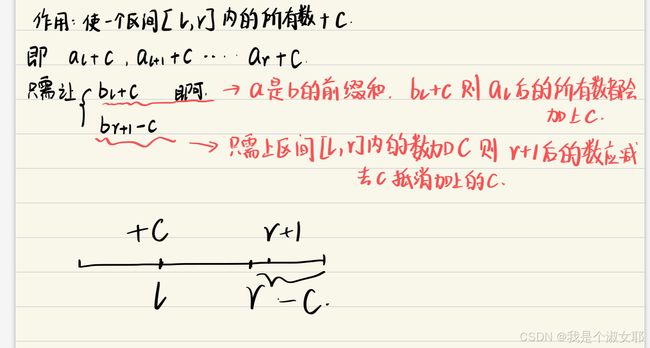 作用:使一个区间[l,r]内的所有数+C.
即 al+c , al+1+c ···· ar+c.
只需让{ bl+c 即可. → a是b的前缀和. bl+c 则 al后的所有数都会
加上C.
br+1-c
→ 只需上区间[l,r]内的数加C 则 r+1后的数应减
去C 抵消加上的C.
+C r+1
l r -C.
CSDN @我是个淑女耶